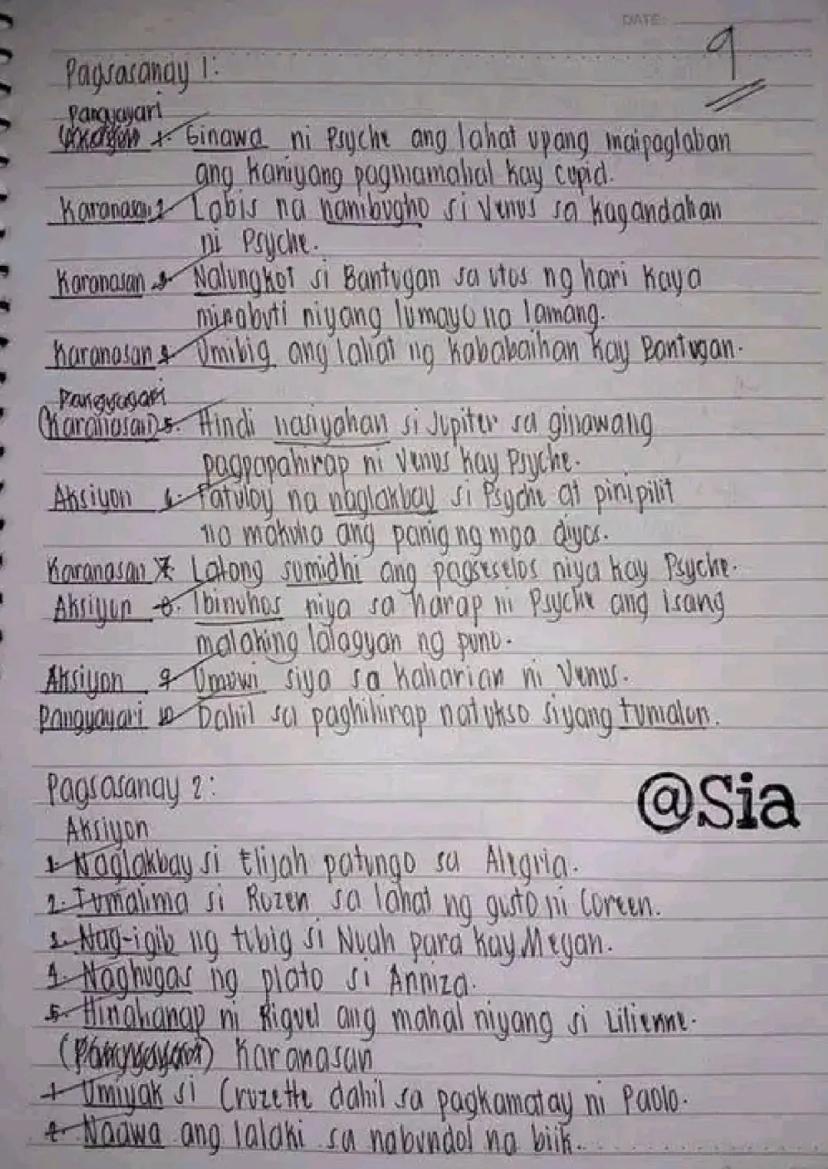 DATE:
9
Pagsasanay 1:
Pangyayari
1. Ginawa ni Psyche ang lahat upang maipaglaban
ang kaniyang pagmamahal kay cupid.
Karanasan 2. Labis na nanibugho si Venus sa kagandahan
ni Psyche.
Karanasan 3. Nalungkot si Bantugan sa utos ng hari kaya
minabuti niyang lumayo na lamang.
Karanasan 4. Umibig ang lahat ng kababaihan kay Bantugan.
Pangyayari
(Karanasan) 5. Hindi nasiyahan si Jupiter sa ginawang
pagpapahirap ni Venus kay Psyche.
Aksiyon 6. Patuloy na naglakbay si Psyche at pinipilit
na makuha ang panig ng mga diyos.
Karanasan 7. Latong sumidhi ang pagseselos niya kay Psyche.
Aksiyon 8. Ibinuhos niya sa harap ni Psyche ang isang
malaking lalagyan ng puno.
Aksiyon 9. Umuwi siya sa kaharian ni Venus.
Pangyayari 10. Dahil sa paghihirap natukso siyang tumalon.
Pagsasanay 2:
@Sia
Aksiyon
1. Naglakbay si Elijah patungo sa Alegria.
2. Tumalima si Rozen sa lahat ng gusto ni Coreen.
3. Nag-igib ng tubig si Nuah para kay Megan.
4. Naghugas ng plato si Anniza.
5. Hinahanap ni Riguel ang mahal niyang si Lilienne.
(Pangyayari) Karanasan
1. Umiyak si Cruzette dahil sa pagkamatay ni Paolo.
2. Naawa ang lalaki sa nabundol na biik.